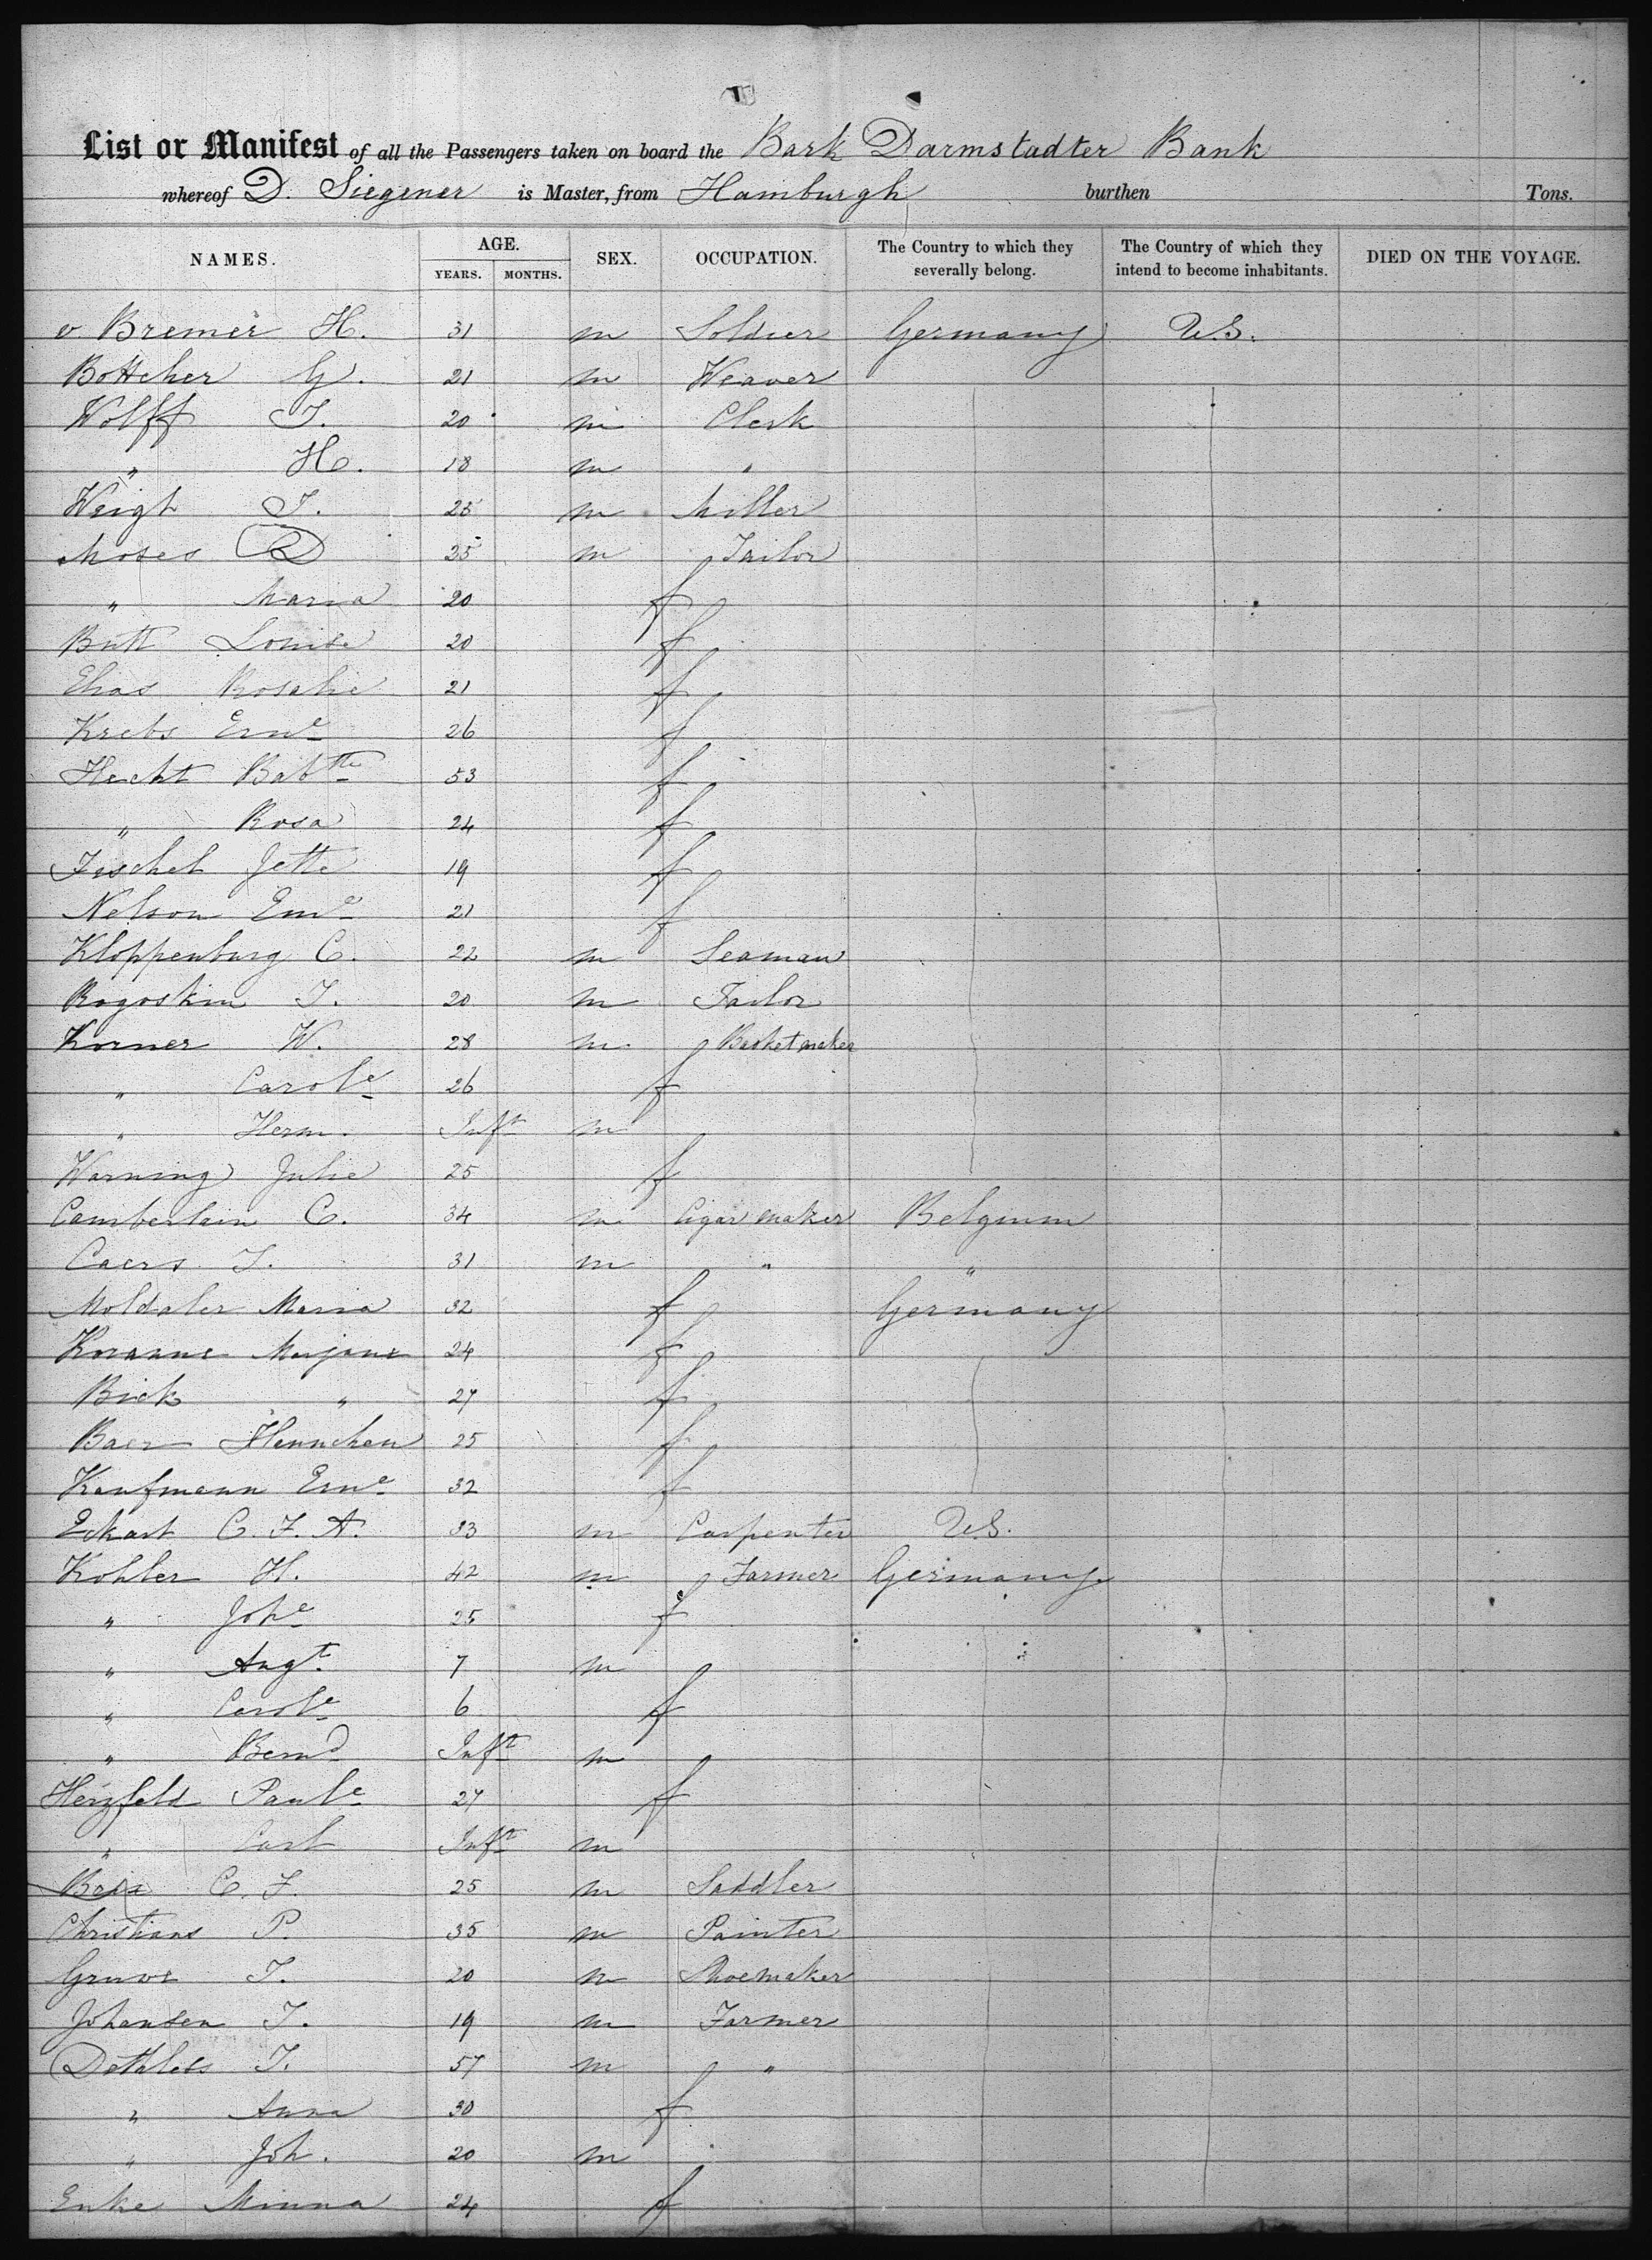 List or Manifest of all the Passengers taken on board the Bark Darmstadter Bank
whereof D. Siegener is Master, from Hamburgh burthen Tons.
NAMES. AGE. YEARS. MONTHS. SEX. OCCUPATION. The Country to which they severally belong. The Country of which they intend to become inhabitants. DIED ON THE VOYAGE.
v. Bremer H. 31 m Soldier Germany U.S.
Bottcher G. 21 m Weaver
Wolff J. 20 m Clerk
" H. 18 m "
Weigh J. 25 m Miller
Moses D 25 m Tailor
" Maria 20 f
Butt Louise 20 f
Elias Rosalie 21 f
Krebs Erne 26 f
Hecht Babtte 53 f
" Rosa 24 f
Fischel Jette 19 f
Nelson Eme 21 f
Kloppenburg C. 22 m Seaman
Rogoskin J. 20 m Tailor
Korner W. 28 m Basketmaker
" Carole 26 f
" Herm. Inft m
Warning Julie 25 f
Camberlain C. 34 m Cigar maker Belgium
Caers J. 31 m " "
Moldaler Maria 32 f Germany
Marjane 24 f
Bick " 27 f
Baer Hennchen 25 f
Kaufmann Erne 32 f
Eckart C. F. A. 33 m Carpenter U.S.
Kohler H. 42 m Farmer Germany
" Johe 25 f
" Augt. 7 m
" Carole 6 f
" Bernd Inft m
Herzfeld Paule 27 f
" Carl Inft m
C. F. 25 m Saddler
Christians P. 35 m Painter
Gruve J. 20 m Shoemaker
Johansen J. 19 m Farmer
Dethlefs J. 57 m "
" Anna 30 f
" Joh. 20 m
Enke Minna 24 f